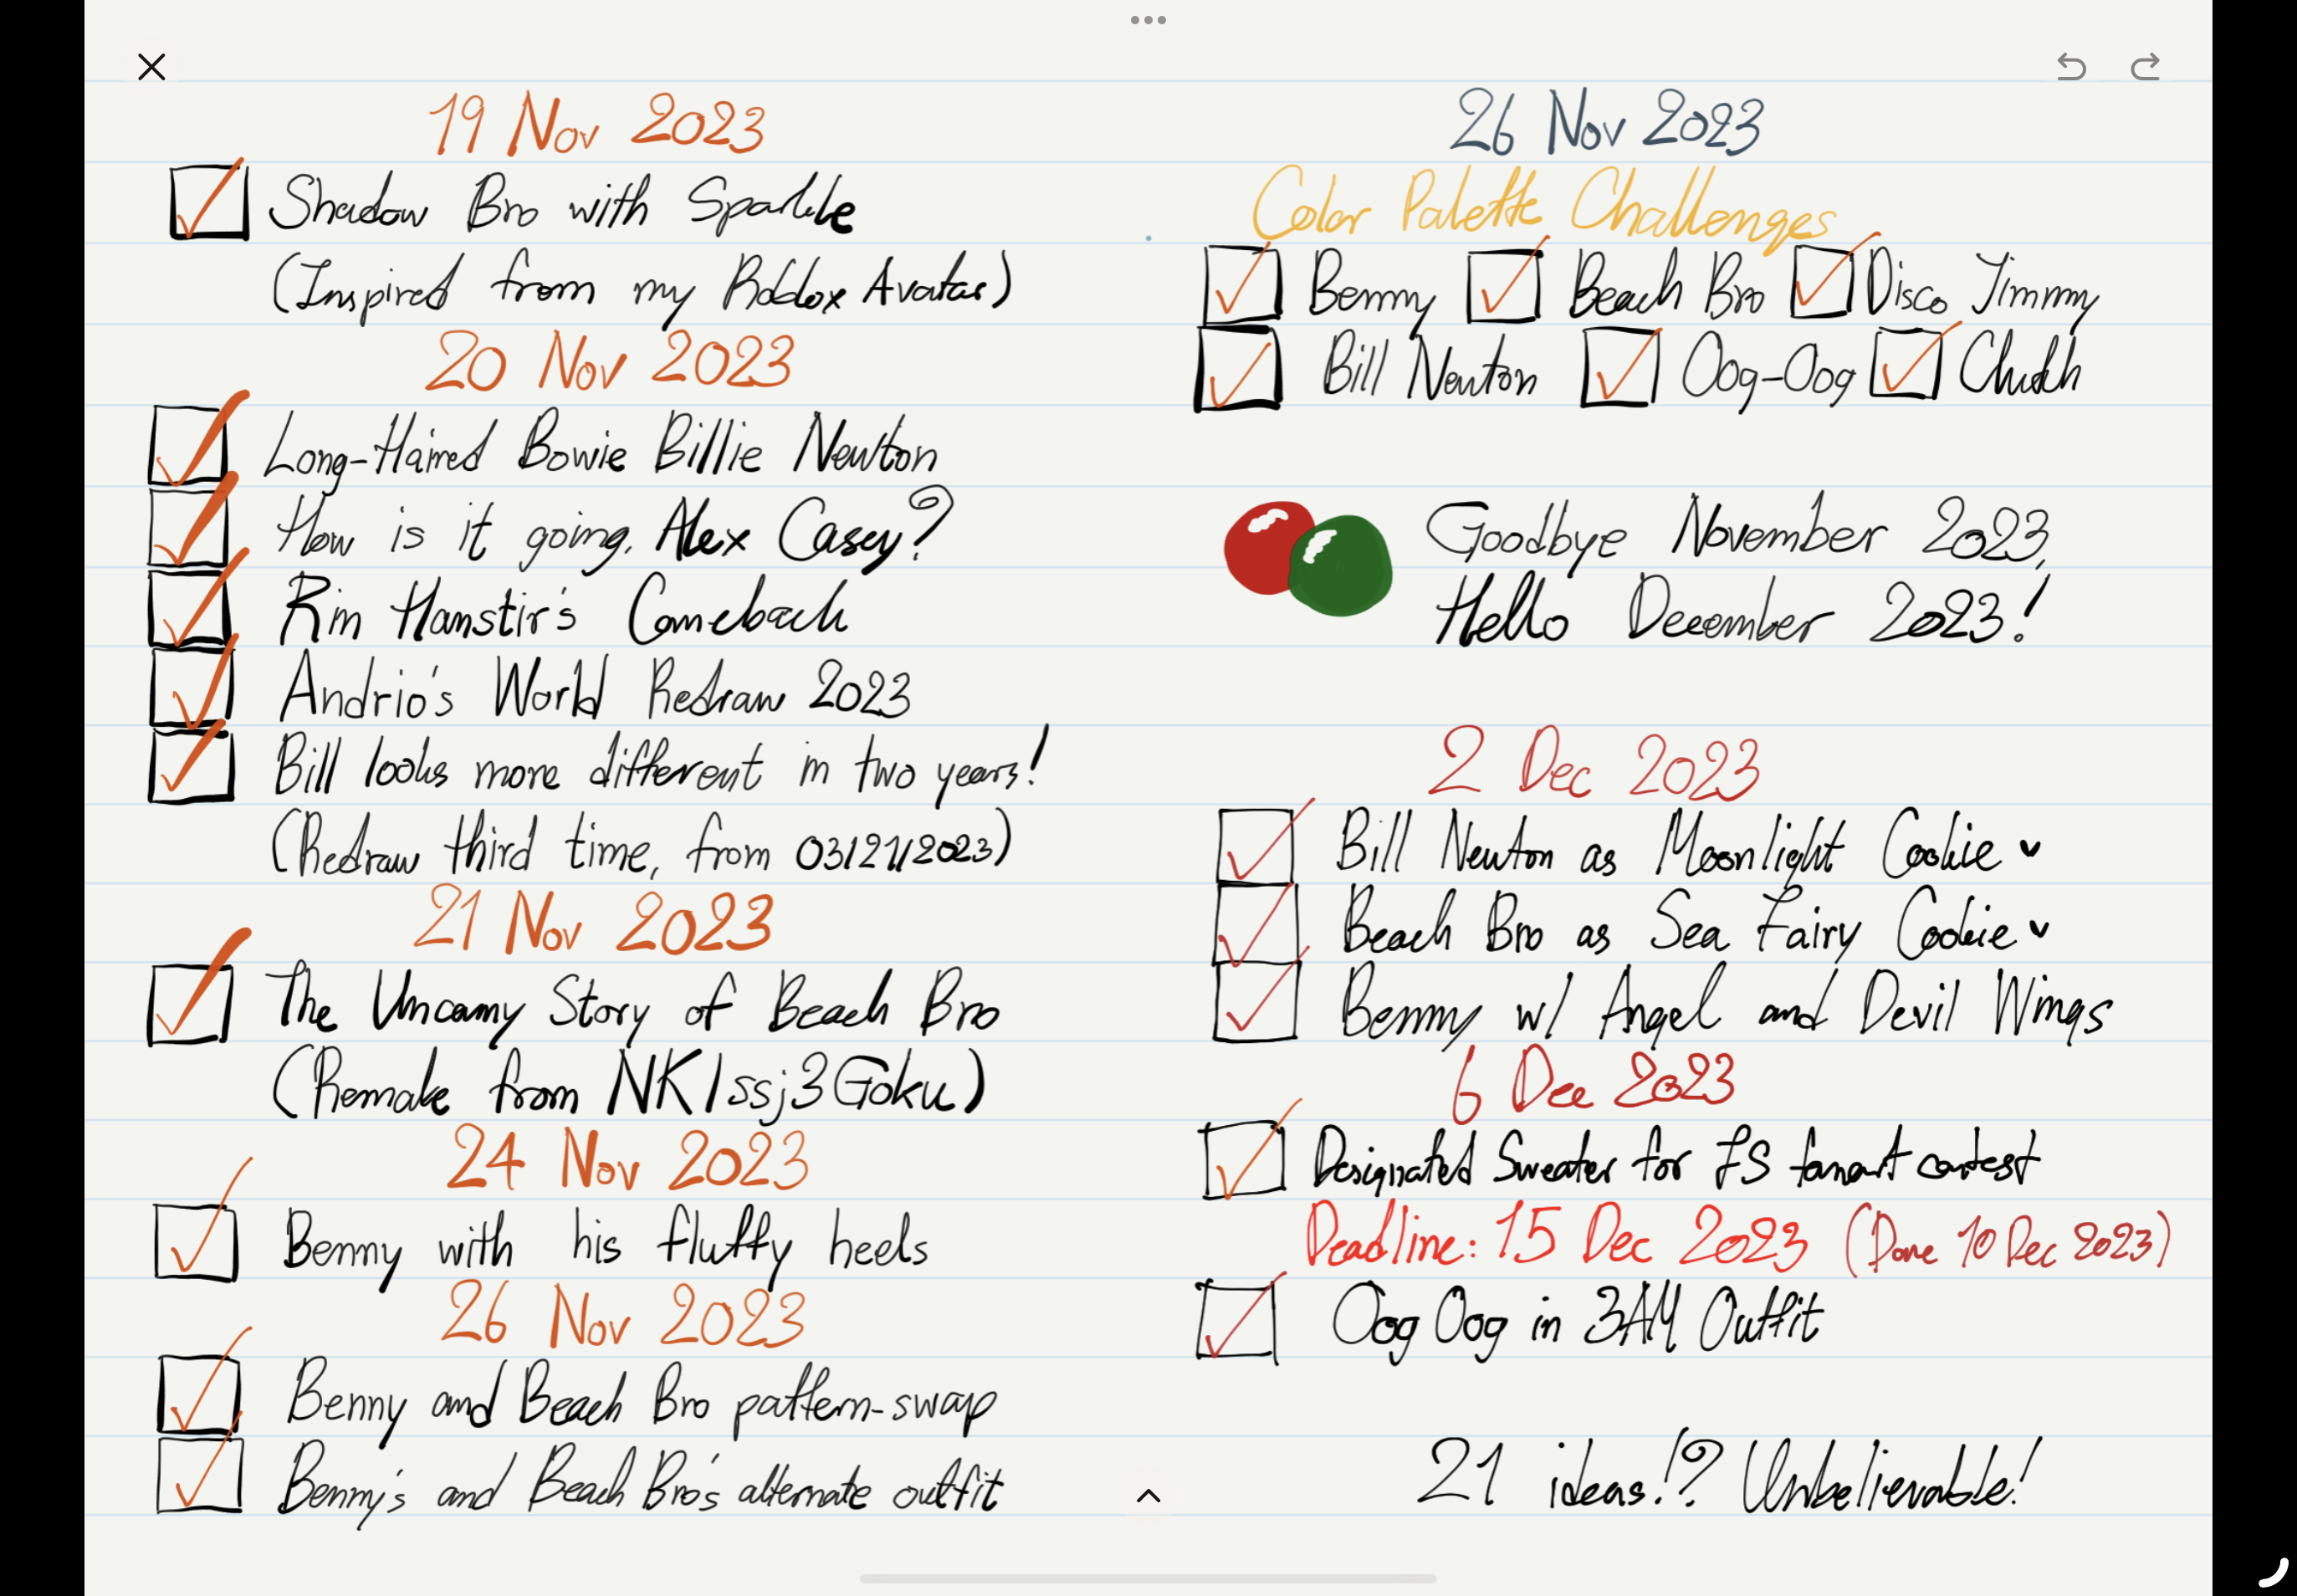 19 Nov 2023
Shadow Bro with Sparkle
(Inspired from my Roblox Avatar)
20 Nov 2023
Long-Haired Bowie Billie Newton
How is it going, Alex Casey?
Rin Hanstir's Comeback
Andrio's World Redraw 2023
Bill looks more different in two years!
(Redraw third time, from 03/21/2023)
21 Nov 2023
The Uncanny Story of Beach Bro
(Remake from NK1ssj3Goku)
24 Nov 2023
Benny with his fluffy heels
26 Nov 2023
Benny and Beach Bro pattern-swap
Benny's and Beach Bro's alternate outfit
26 Nov 2023
Color Palette Challenges
Benny Beach Bro Disco Jimmy
Bill Newton Oog-Oog Chukh
Goodbye November 2023,
Hello December 2023!
2 Dec 2023
Bill Newton as Moonlight Cookie
Beach Bro as Sea Fairy Cookie
Benny w/ Angel and Devil Wings
6 Dec 2023
Designated Sweater for FS fanart contest
Deadline: 15 Dec 2023 (Done 10 Dec 2023)
Oog Oog in 3AM Outfit
21 ideas!? Unbelievable!